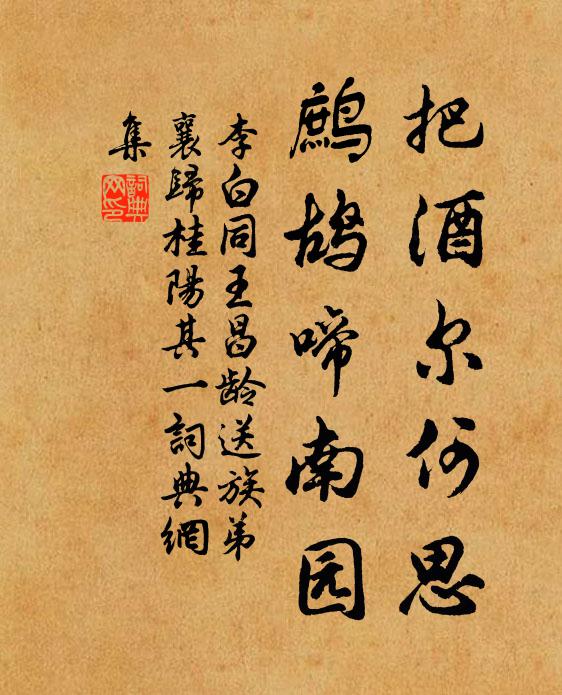 把酒尔何思
鹧鸪啼南园
李白同王昌龄送族弟
襄歸桂陽其一詞典網
集
詞典
网印